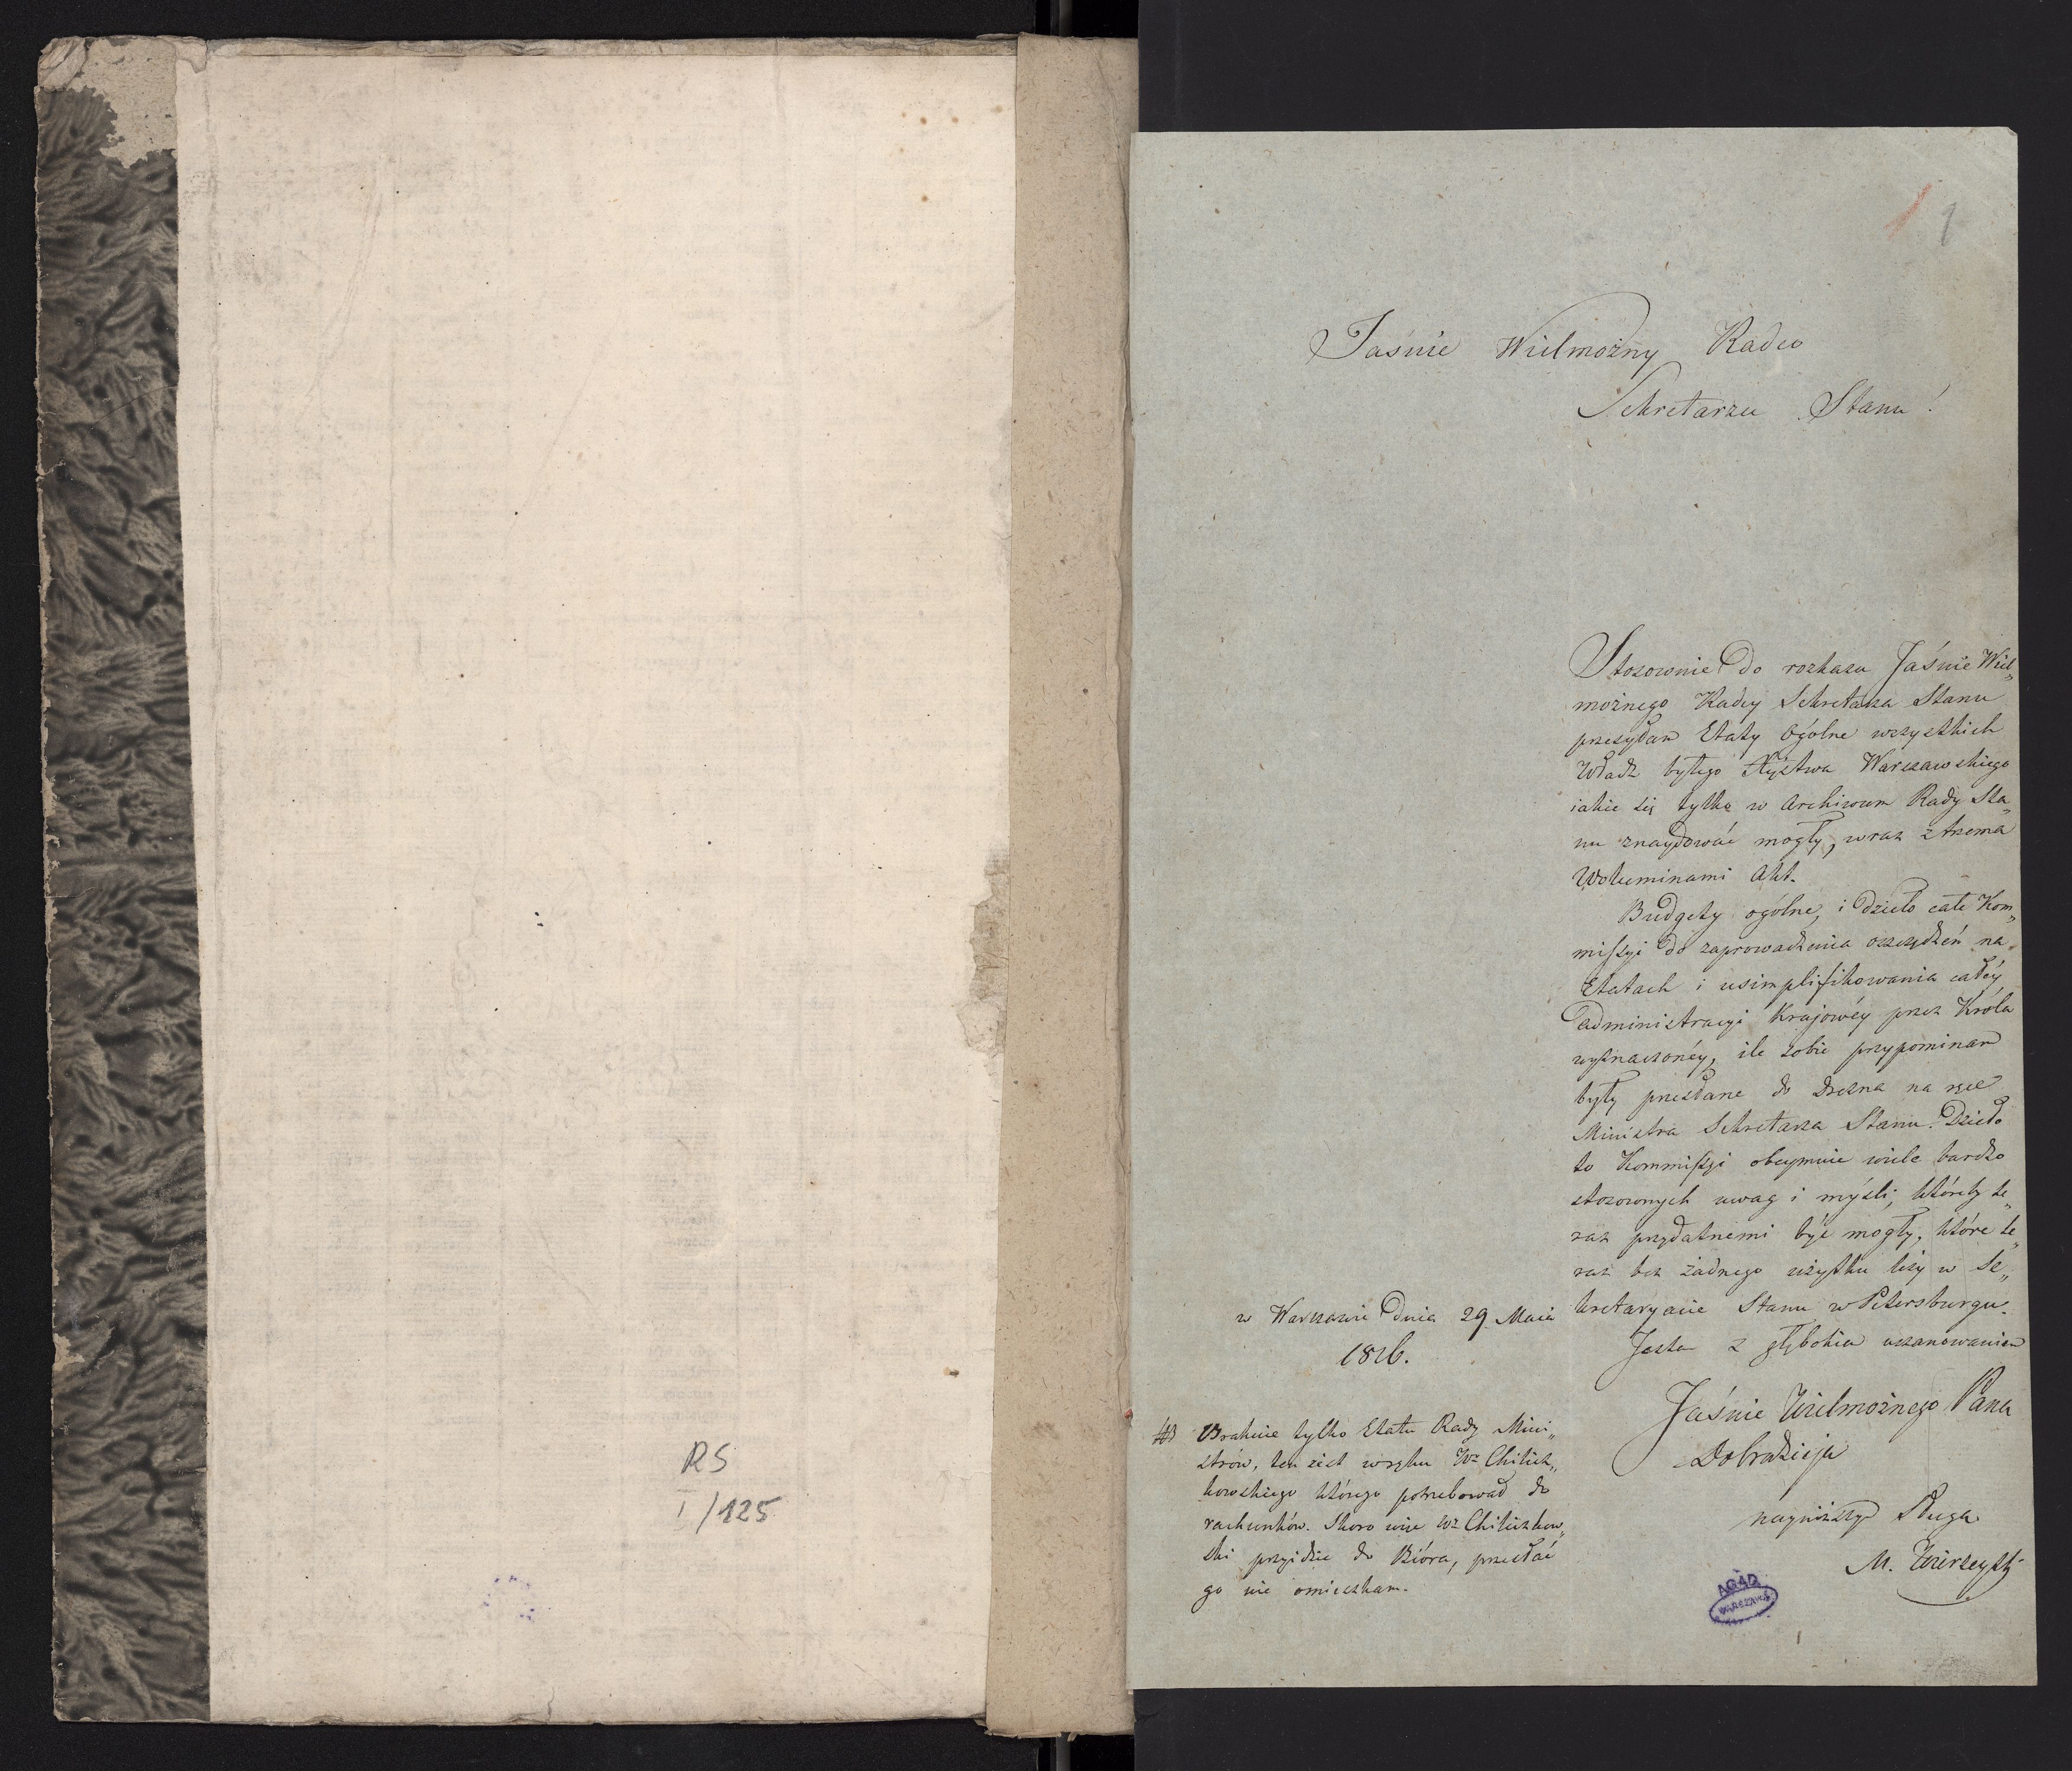 RS
I/125
1 1
Jaśnie Wielmożny Radco
Sekretarzu Stanu!
Stosownie do rozkazu Jaśnie Wiel„
możnego Radcy Sekretarza Stanu
przesyłam Etaty Ogólne wszystkich
Władz byłego Xięstwa Warszawskiego
iakie się tylko w Archiwum Rady Sta„
nu znaydować mogły, wraz z trzema
Woluminami Akt.
Budgety ogólne, i dzieło całe Kom„
missyi do zaprowadzenia oszczędzeń na
Etatach i usimplifikowania całéy
administracyi Krajowéy przez Króla
wyznaczonéy, ile sobie przypominam
były przesłane do Drezna na ręce
Ministra Sekretarza Stanu. Dzieło
to Kommissyi obeymuie wiele bardzo
stosownych uwag i myśli, któreby te„
raz przydatnemi być mogły, które te„
raz bez żadnego użytku leży w Se„
kretaryacie Stanu w Petersburgu.
Jestem z głębokiem uszanowaniem
Jaśnie Wielmożnego Pana
Dobrodzieja
nayniższy Sługa
M. Wierzeyski
w Warszawie Dnia 29 Maia
1816.
NB Brakuie tylko Etatu Rady Mini„
strów, ten iest w ręku Wo Chilicz„
kowskiego którego potrzebował do
rachunków. Skoro więc Wo Chiliczkow„
ski przyidzie do Bióra, przesłać
go nie omieszkam.
AGAD
WARSZAWA